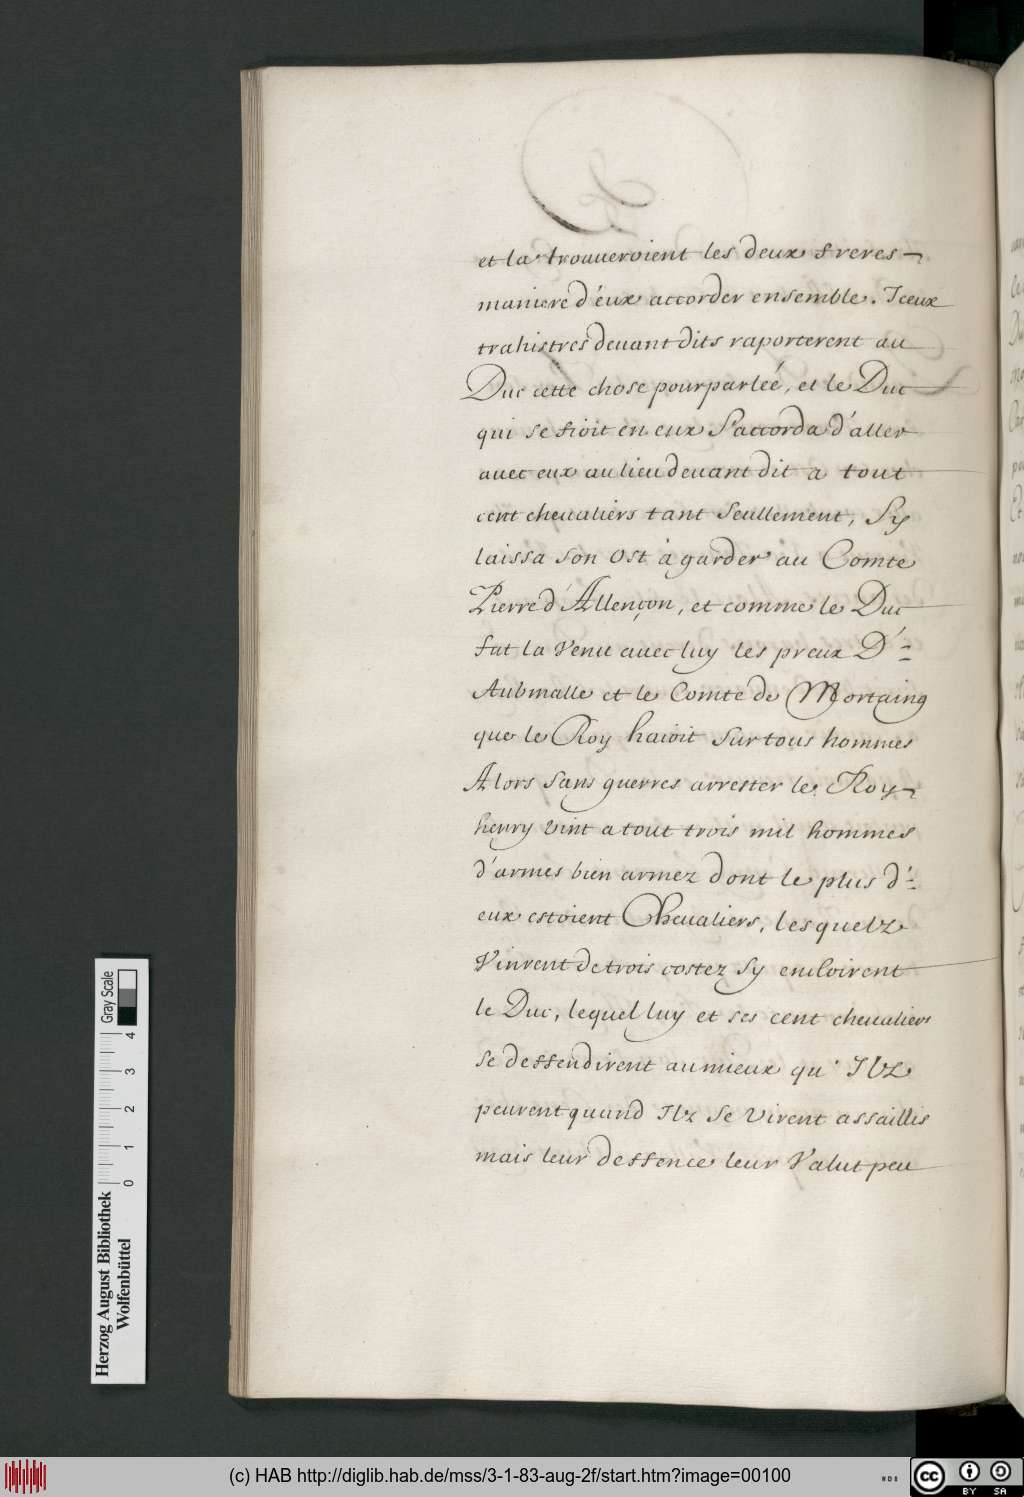 et la trouueroient les deux freres
maniere d'éux accorder ensemble. Iceux
trahistres deuant dits raporterent au
Duc cette chose pourparleé, et le Duc
qui se fioit en eux S'accorda d'áller
auec eux au lieu deuant dit a tout
cent cheualiers tant Seullement, Sy
laissa son Ost à garder au Comte
Pierre d'Allençon, et comme le Duc
fut la Venu auec luy les preux D'-
Aubmalle et le Comte de Mortaing
que le Roy haioit Sur tous hommes
Alors sans guerres arrester le Roy
henry Vint a tout trois mil hommes
d'armes bien armez dont le plus d'-
eux estoient Cheualiers, lesquelz
Vinrent de trois costez Sy encloirent
le Duc, lequel luy et ses cent cheualiers
se deffendirent au mieux qu'Ilz
peurent quand Ilz Se Virent assaillis
mais leur deffence leur Valut peu
Herzog August Bibliothek
Wolfenbüttel
0 1 2 3 4
Gray Scale
(c) HAB http://diglib.hab.de/mss/3-1-83-aug-2f/start.htm?image=00100
WDB
cc BY SA